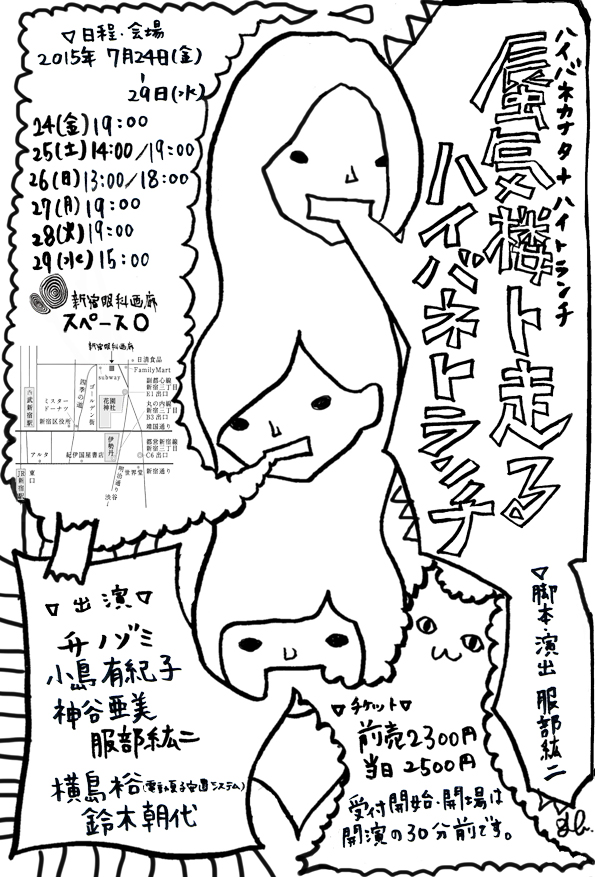 ハイバネカナタ+ハイトランチ
蜃気楼ト走る
ハイバネトランチ
▽日程・会場
2015年 7月24日(金)
~
29日(水)
24(金)19:00
25(土)14:00/19:00
26(日)13:00/18:00
27(月)19:00
28(火)19:00
29(水)15:00
新宿眼科画廊
スペースO
新宿眼科画廊
日清食品
FamilyMart
subway
四季の道
ゴールデン街
花園
神社
副都心線
新宿三丁目
E1出口
丸の内線
新宿三丁目
B3出口
靖国通り
西武新宿駅
ミスター
ドーナツ
新宿区役所
伊勢丹
都営新宿線
新宿三丁目
C6出口
アルタ
紀伊国屋書店
新宿通り
世界堂
明治通り
渋谷
JR新宿駅
東口
▽脚本・演出 服部紘二
▽出演▽
サノゾミ
小島有紀子
神谷亜美
服部紘二
横島裕
鈴木朝代
▽チケット▽
前売2300円
当日2500円
受付開始・開場は
開演の30分前です。